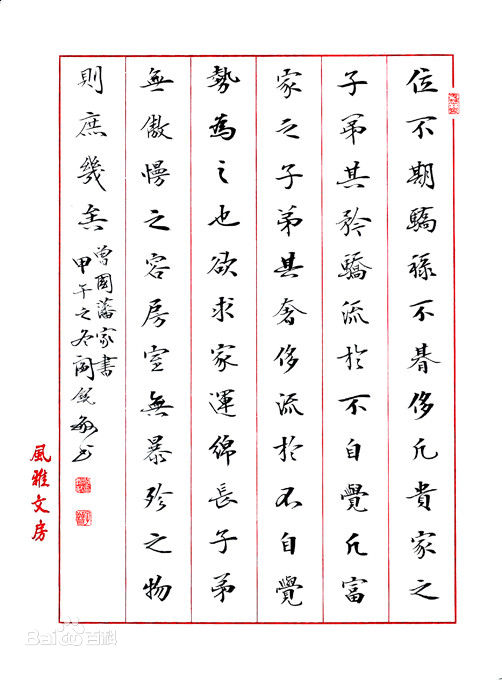 位不期驕祿不朞侈凡貴家之
子弟其矜驕流於不自覺凡富
家之子弟其奢侈流於不自覺
勢為之也欲求家運綿長子弟
無傲慢之容房室無暴殄之物
則庶幾矣
曾國藩家書
甲午之冬閻銳敏书
風雅文房
Bai百科